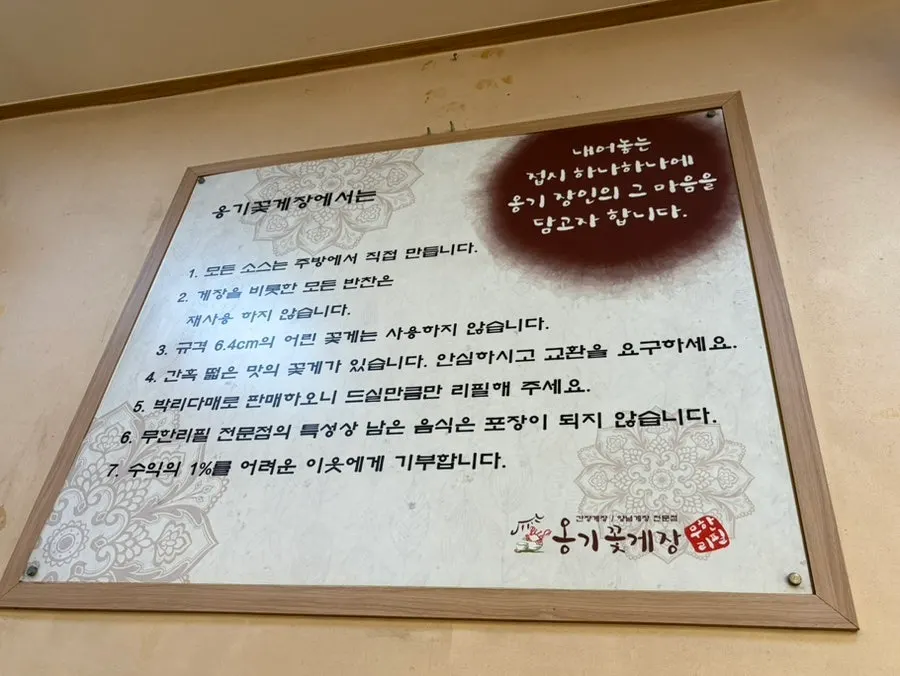 내어놓는
접시 하나하나에
옹기 장인의 그 마음을
담고자 합니다.
옹기꽃게장에서는
1. 모든 소스는 주방에서 직접 만듭니다.
2. 게장을 비롯한 모든 반찬은
재사용 하지 않습니다.
3. 규격 6.4cm의 어린 꽃게는 사용하지 않습니다.
4. 간혹 떫은 맛의 꽃게가 있습니다. 안심하시고 교환을 요구하세요.
5. 박리다매로 판매하오니 드실만큼만 리필해 주세요.
6. 무한리필 전문점의 특성상 남은 음식은 포장이 되지 않습니다.
7. 수익의 1%를 어려운 이웃에게 기부합니다.
간장게장 / 양념게장 전문점
옹기꽃게장
무한
리필